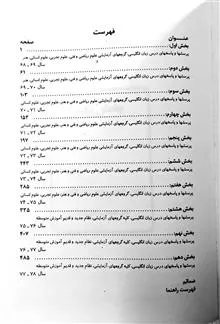 فهرست
عنـــوان
صفحه
بخش اول: ۱
پرسشها و پاسخهای درس زبان انگلیسی، گروههای آزمایشی علوم ریاضی و فنی، علوم تجربی، علوم انسانی، هنر
سال ۶۹ ـ ۶۸
بخش دوم: ۶۱
پرسشها و پاسخهای درس زبان انگلیسی، گروههای آزمایشی علوم ریاضی و فنی و هنر، علوم تجربی، علوم انسانی
سال ۷۰ ـ ۶۹
بخش سوم: ۱۰۳
پرسشها و پاسخهای درس زبان انگلیسی، گروههای آزمایشی علوم ریاضی و فنی و هنر، علوم تجربی، علوم انسانی
سال ۷۱ ـ ۷۰
بخش چهارم: ۱۵۳
پرسشها و پاسخهای درس زبان انگلیسی، گروههای آزمایشی علوم ریاضی و فنی و هنر، علوم تجربی، علوم انسانی
سال ۷۲ ـ ۷۱
بخش پنجم: ۱۹۷
پرسشها و پاسخهای درس زبان انگلیسی، گروههای آزمایشی علوم ریاضی و فنی و هنر، علوم تجربی، علوم انسانی
سال ۷۳ ـ ۷۲
بخش ششم: ۲۴۳
پرسشها و پاسخهای درس زبان انگلیسی، گروههای آزمایشی علوم ریاضی و فنی و هنر، علوم تجربی، علوم انسانی
سال ۷۴ ـ ۷۳
بخش هفتم: ۲۸۵
پرسشها و پاسخهای درس زبان انگلیسی، گروههای آزمایشی علوم ریاضی و فنی و هنر، علوم تجربی، علوم انسانی
سال ۷۵ ـ ۷۴
بخش هشتم: ۳۳۵
پرسشها و پاسخهای درس زبان انگلیسی، کلیه گروههای آزمایشی، نظام جدید و قدیم آموزش متوسطه
سال ۷۶ ـ ۷۵
بخش نهم: ۴۰۷
پرسشها و پاسخهای درس زبان انگلیسی، کلیه گروههای آزمایشی، نظام جدید و قدیم آموزش متوسطه
سال ۷۷ ـ ۷۶
بخش دهم: ۴۸۵
پرسشها و پاسخهای درس زبان انگلیسی، کلیه گروههای آزمایشی، نظام جدید و قدیم آموزش متوسطه
سال ۷۸ ـ ۷۷
ضمائم
فهرست راهنما